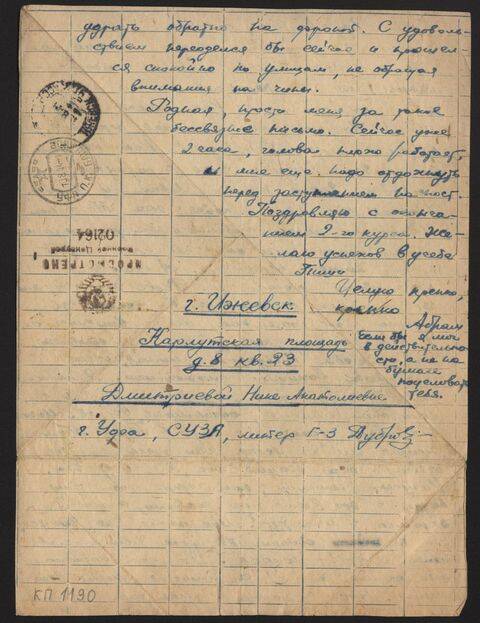 удрать обратно на дорогой. С удоволь-
ствием переоделся бы сейчас и прошел-
ся спокойно по улицам, не обращая
внимания на чины.
Родная, прости меня за такое
бессвязное письмо. Сейчас уже
2 часа, голова плохо работает,
и мне еще надо отдохнуть
перед заступлением на пост.
Поздравляю с оконча-
нием 2-го курса. Же-
лаю успехов в учебе
Пиши
Целую крепко,
крепко
Абрам
Если бы я мог
в действительно-
сти, а не на
бумаге
поцеловать
тебя.
ПРОСМОТРЕНО
Военной Цензурой
02164
г. Ижевск
Карлутская площадь
д. 8 кв. 23
Дмитриевой Нине Анатолиевне
г. Уфа, СУЗА, литер Г-3
КП 1190